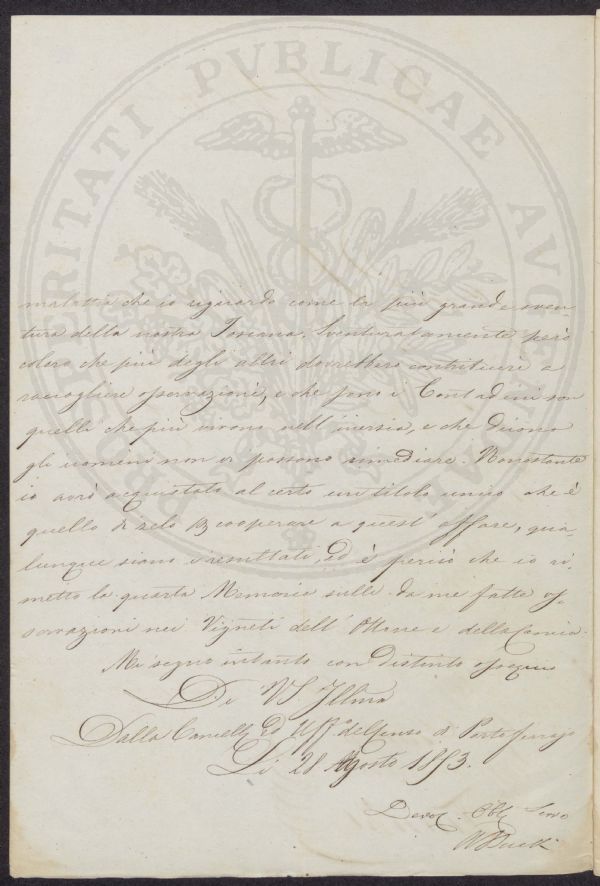 PROSPERITATI PVBLICAE AVGENDAE
malattia che io riguardo come la più grande sven-
tura della nostra Toscana. Sventuratamente però
coloro che più degli altri dovrebbero contribuire a
raccogliere osservazioni, e che sono i Contadini son
quelli che più vivono nell'inerzia, e che dicono
gli uomini non ci possono rimediare. Nonostante
io avrò acquistato al certo un titolo unico che è
quello di zelo di cooperare a quest'affare, qua-
lunque siano i resultati, ed è perciò che io ri-
metto la quarta Memoria sulle da me fatte os-
servazioni nei Vigneti dell'Ottone e della
Mi segno intanto con distinto ossequio
Di VS. Illma
Dalla Cancell. ed Uff.o del Censo di Portoferrajo
Li 28 Agosto 1853.
Devot. Obb. Servo